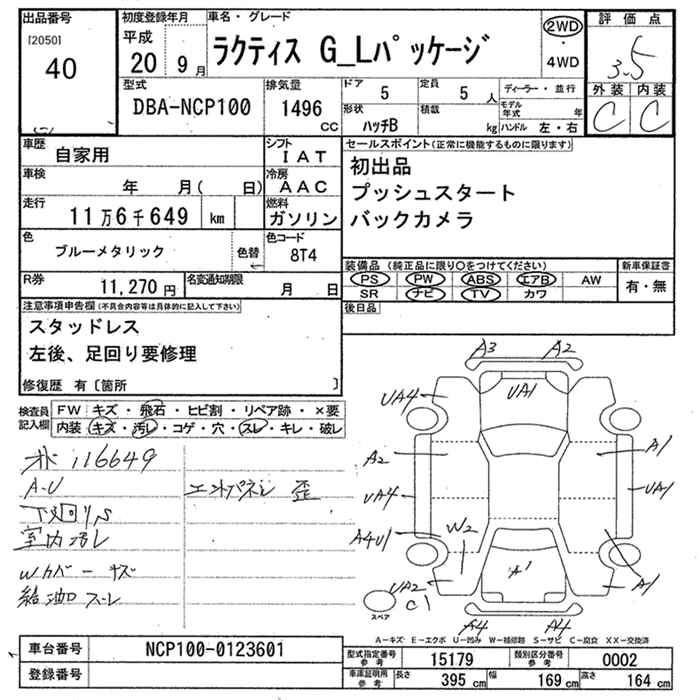 出品番号
[2050]
40
初度登録年月
平成
20 9月
車名・グレード
ラクティス G_Lパッケージ
2WD
・
4WD
評価点
3.5
外装 内装
C C
型式
DBA-NCP100
排気量
1496
CC
ドア
5
定員
5 人
ディーラー・並行
形状
ハッチB
積載
kg
モデル年式 年
ハンドル 左・右
車歴
自家用
シフト
IAT
車検
年 月( 日)
冷房
AAC
走行
11万6千649 km
燃料
ガソリン
色
ブルーメタリック
色替
色コード
8T4
R券
11,270円
名変通知期限
月 日
セールスポイント(正常に機能するものに限ります)
初出品
プッシュスタート
バックカメラ
装備品 (純正品に限り○をつけてください)
PS PW ABS エアB AW
SR ナビ TV カワ
新車保証書
有・無
後日品
注意事項申告欄(不具合内容等は具体的に記入して下さい)
スタッドレス
左後、足回り要修理
修復歴 有〔箇所 〕
検査員
記入欄
FW キズ・飛石・ヒビ割・リペア跡・×要
内装 キズ・汚レ・コゲ・穴・スレ・キレ・破レ
116649
A-U
エンドパネル 歪
下廻りS
室内汚レ
Wカバーキズ
給油スレ
A3 A2
UA4 UA1
A2 A1
UA4 UA1
A4U1 W2
A1
UA2 A1
C1
スペア
A4 A4
A-キズ E-エクボ U-凹み W-補修跡 S-サビ C-腐食 XX-交換済
車台番号
NCP100-0123601
登録番号
型式指定番号
参考
15179
類別区分番号
参考
0002
車庫証明用
参考
長さ
395 cm
幅
169 cm
高さ
164 cm